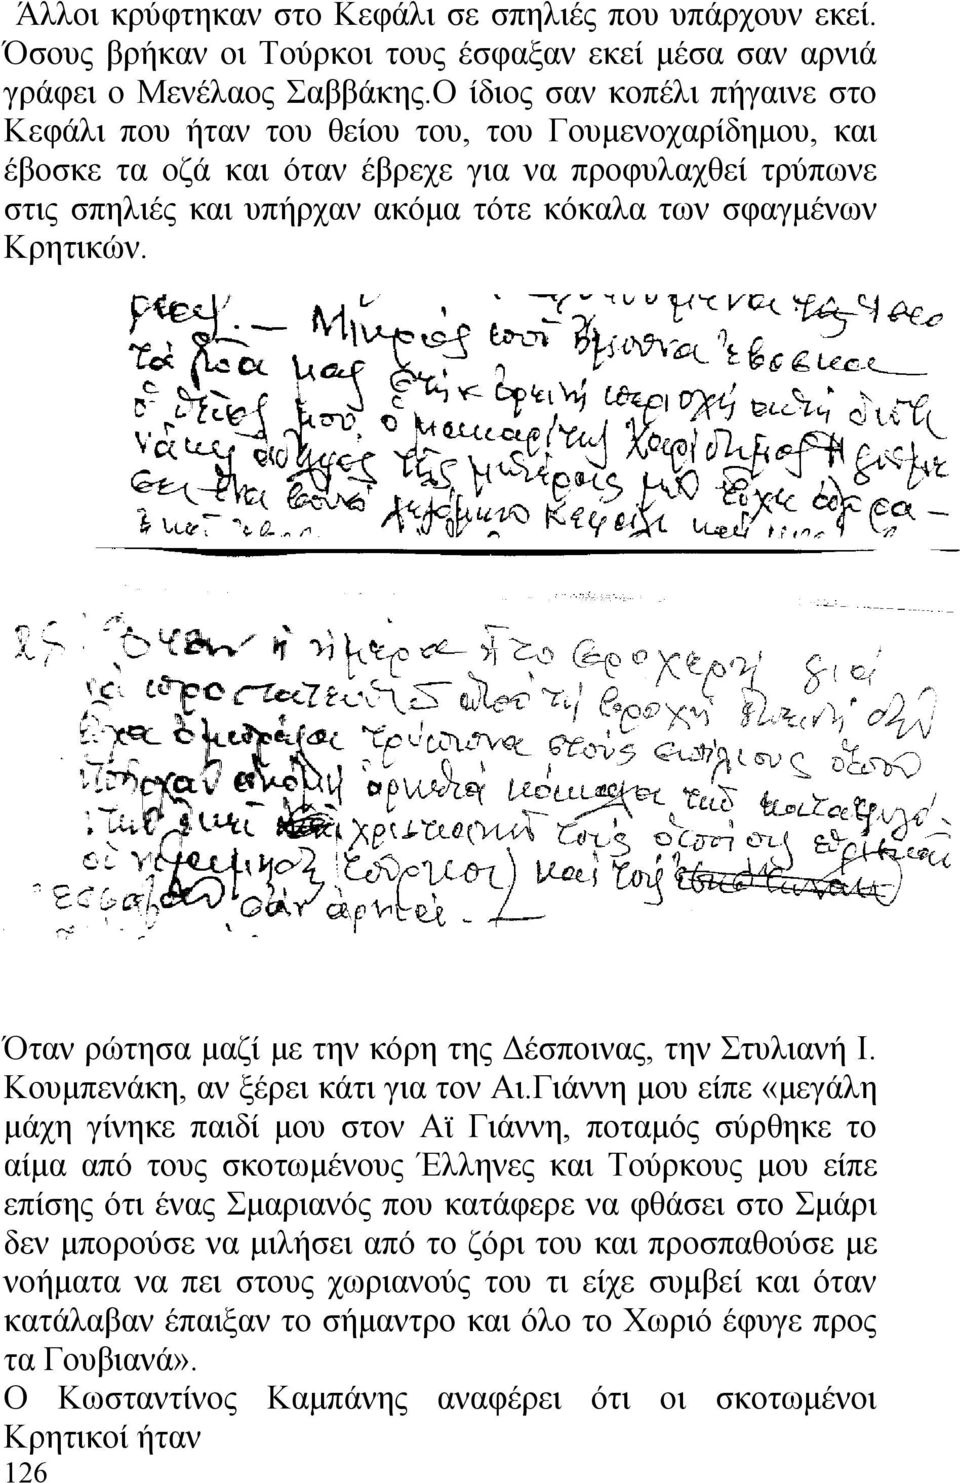 Άλλοι κρύφτηκαν στο Κεφάλι σε σπηλιές που υπάρχουν εκεί.
Όσους βρήκαν οι Τούρκοι τους έσφαξαν εκεί μέσα σαν αρνιά
γράφει ο Μενέλαος Σαββάκης.Ο ίδιος σαν κοπέλι πήγαινε στο
Κεφάλι που ήταν του θείου του, του Γουμενοχαρίδημου, και
έβοσκε τα οζά και όταν έβρεχε για να προφυλαχθεί τρύπωνε
στις σπηλιές και υπήρχαν ακόμα τότε κόκαλα των σφαγμένων
Κρητικών.
Μικρός
μας περιοχή αυτή διότι
ὁ θεῖος μου, ὁ μακαρίτης Χαρίδημος
τῆς μητέρας μου εἶχε ἀγορά-
σει ἕνα βουνό λεγόμενο Κεφάλι
25 Ὅταν ἡ ἡμέρα ἦτο βροχερή γιά
νά προστατευτῶ ἀπό τή βροχή
τρύπωνα στούς σπήλιους ὅπου
ὑπῆρχαν ἀκόμη ἀρκετά κόκκαλα τῶν
χριστιανῶν τούς ὁποίους
οἱ Τοῦρκοι) καί τούς
ἔσφαξαν σάν ἀρνιά.
Όταν ρώτησα μαζί με την κόρη της Δέσποινας, την Στυλιανή Ι.
Κουμπενάκη, αν ξέρει κάτι για τον Αι.Γιάννη μου είπε «μεγάλη
μάχη γίνηκε παιδί μου στον Αϊ Γιάννη, ποταμός σύρθηκε το
αίμα από τους σκοτωμένους Έλληνες και Τούρκους μου είπε
επίσης ότι ένας Σμαριανός που κατάφερε να φθάσει στο Σμάρι
δεν μπορούσε να μιλήσει από το ζόρι του και προσπαθούσε με
νοήματα να πει στους χωριανούς του τι είχε συμβεί και όταν
κατάλαβαν έπαιξαν το σήμαντρο και όλο το Χωριό έφυγε προς
τα Γουβιανά».
Ο Κωσταντίνος Καμπάνης αναφέρει ότι οι σκοτωμένοι
Κρητικοί ήταν
126